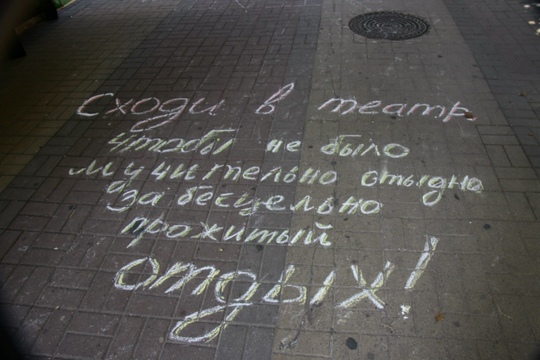 Сходи в театр
чтобы не было
мучительно стыдно
за бесцельно
прожитый
отдых!